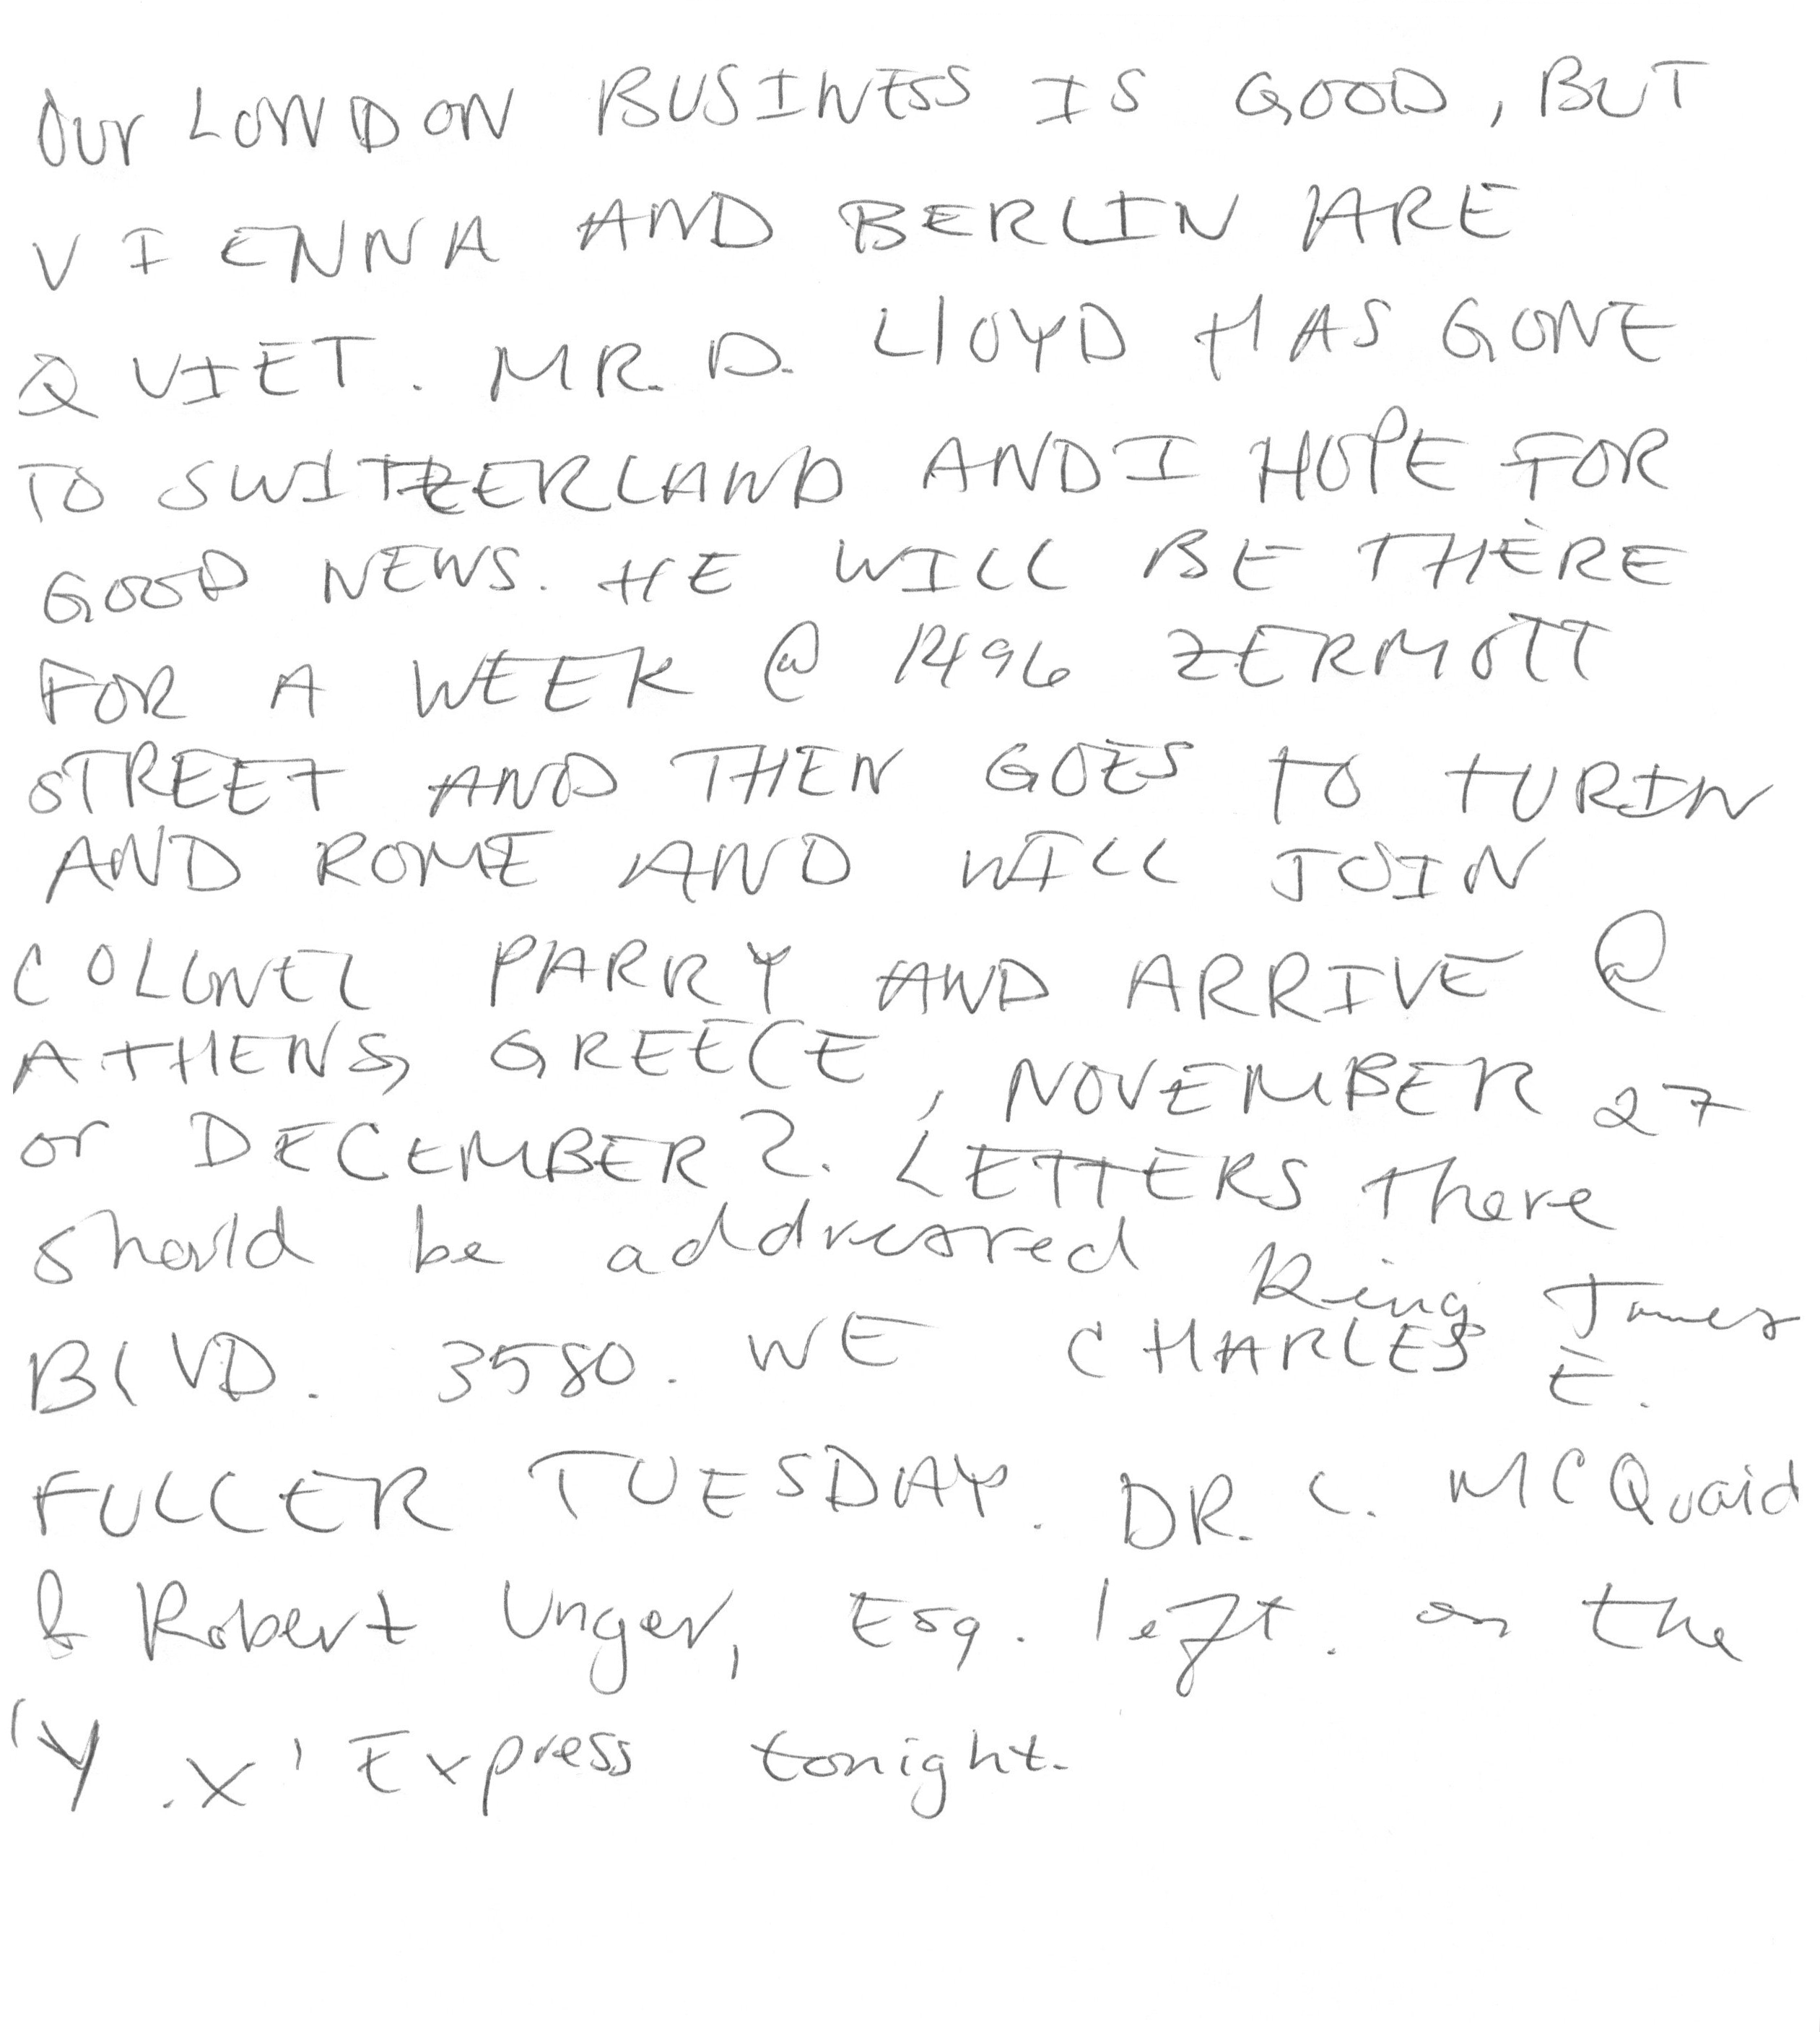 Our LONDON BUSINESS IS GOOD, BUT
VIENNA AND BERLIN ARE
QUIET. MR. D. LLOYD HAS GONE
TO SWITZERLAND AND I HOPE FOR
GOOD NEWS. HE WILL BE THERE
FOR A WEEK @ 1496 ZERMOTT
STREET AND THEN GOES TO TURIN
AND ROME AND WILL JOIN
COLONEL PARRY AND ARRIVE @
ATHENS, GREECE, NOVEMBER 27
or DECEMBER 2. LETTERS there
should be addressed King James
BLVD. 3580. WE CHARLES E.
FULLER TUESDAY. DR. L. MCQuaid
& Robert Unger, Esq. left. on the
'Y.X' Express tonight.